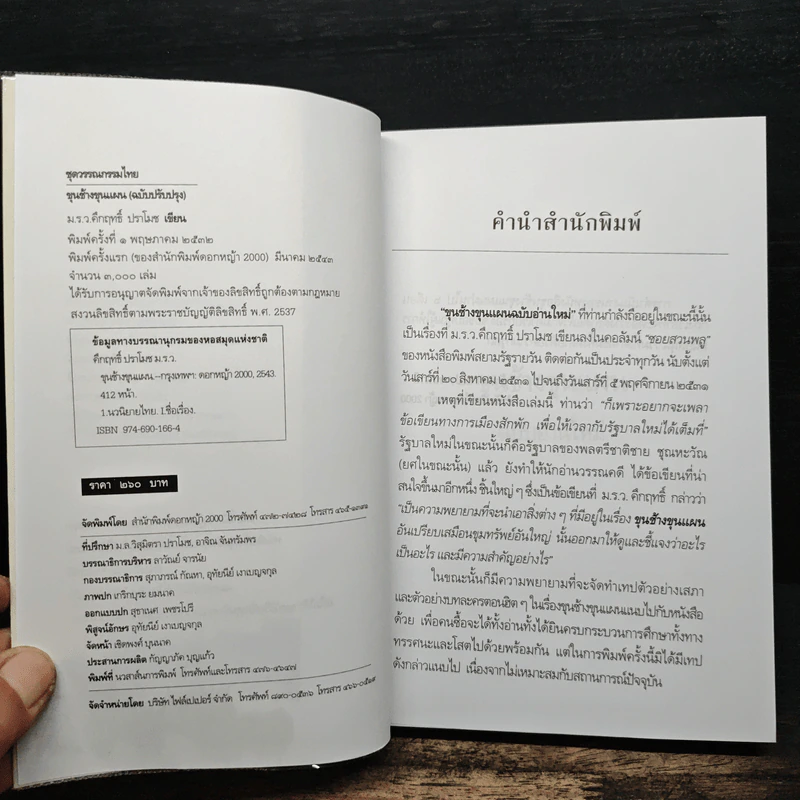 ชุดวรรณกรรมไทย
ขุนช้างขุนแผน (ฉบับปรับปรุง)
ม.ร.ว.คึกฤทธิ์ ปราโมช เขียน
พิมพ์ครั้งที่ ๑ พฤษภาคม ๒๕๓๒
พิมพ์ครั้งแรก (ของสำนักพิมพ์ดอกหญ้า 2000) มีนาคม ๒๕๔๓
จำนวน ๓,๐๐๐ เล่ม
ได้รับการอนุญาตจัดพิมพ์จากเจ้าของลิขสิทธิ์ถูกต้องตามกฎหมาย
สงวนลิขสิทธิ์ตามพระราชบัญญัติลิขสิทธิ์ พ.ศ. 2537
ข้อมูลทางบรรณานุกรมของหอสมุดแห่งชาติ
คึกฤทธิ์ ปราโมช ม.ร.ว.
ขุนช้างขุนแผน.--กรุงเทพฯ: ดอกหญ้า 2000, 2543.
412 หน้า.
1.นวนิยายไทย. I.ชื่อเรื่อง.
ISBN 974-690-166-4
ราคา ๒๖๐ บาท
จัดพิมพ์โดย สำนักพิมพ์ดอกหญ้า 2000 โทรศัพท์ ๔๗๒-๗๔๒๘ โทรสาร
ที่ปรึกษา ม.ล.วิสุมิตรา ปราโมช, อาจิณ จันทรัมพร
บรรณาธิการบริหาร ลาวัณย์ จารนัย
กองบรรณาธิการ สุภาภรณ์ กัณหา, อุทัยนีย์ เงาเบญจกุล
ภาพปก เกริกบุระ ยมนาค
ออกแบบปก สุชาเนศ เพชรโปรี
พิสูจน์อักษร อุทัยนีย์ เงาเบญจกุล
จัดหน้า เชิดพงศ์ บุนนาค
ประสานการผลิต กัญญาภัค บุญแก้ว
พิมพ์ที่ นวสาส์นการพิมพ์ โทรศัพท์และโทรสาร ๔๗๖-๔๖๔๗
จัดจำหน่ายโดย บริษัท ไฟล์เปเปอร์ จำกัด โทรศัพท์ ๘๙๐-๐๕๓๖ โทรสาร
คำนำสำนักพิมพ์
"ขุนช้างขุนแผนฉบับอ่านใหม่" ที่ท่านกำลังถืออยู่ในขณะนี้นั้น
เป็นเรื่องที่ ม.ร.ว.คึกฤทธิ์ ปราโมช เขียนลงในคอลัมน์ "ซอยสวนพลู"
ของหนังสือพิมพ์สยามรัฐรายวัน ติดต่อกันเป็นประจำทุกวัน นับตั้งแต่
วันเสาร์ที่ ๒๐ สิงหาคม ๒๕๓๑ ไปจนถึงวันเสาร์ที่ ๕ พฤศจิกายน ๒๕๓๑
เหตุที่เขียนหนังสือเล่มนี้ ท่านว่า "ก็เพราะอยากจะเพลา
ข้อเขียนทางการเมืองสักพัก เพื่อให้เวลากับรัฐบาลใหม่ได้เต็มที่"
รัฐบาลใหม่ในขณะนั้นก็คือรัฐบาลของพลตรีชาติชาย ชุณหะวัณ
(ยศในขณะนั้น) แล้ว ยังทำให้นักอ่านวรรณคดี ได้ข้อเขียนที่น่า
สนใจขึ้นมาอีกหนึ่ง ชิ้นใหญ่ ๆ ซึ่งเป็นข้อเขียนที่ ม.ร.ว. คึกฤทธิ์ กล่าวว่า
"เป็นความพยายามที่จะนำเอาสิ่งต่าง ๆ ที่มีอยู่ในเรื่อง ขุนช้างขุนแผน
อันเปรียบเสมือนขุมทรัพย์อันใหญ่ นั้นออกมาให้ดูและชี้แจงว่าอะไร
เป็นอะไร และมีความสำคัญอย่างไร"
ในขณะนั้นก็มีความพยายามที่จะจัดทำเทปตัวอย่างเสภา
และตัวอย่างบทละครตอนฮิต ๆ ในเรื่องขุนช้างขุนแผนแนบไปกับหนังสือ
ด้วย เพื่อคนซื้อจะได้ทั้งอ่านทั้งได้ยินครบกระบวนการศึกษาทั้งทาง
ทรรศนะและโสตไปด้วยพร้อมกัน แต่ในการพิมพ์ครั้งนี้มิได้มีเทป
ดังกล่าวแนบไป เนื่องจากไม่เหมาะสมกับสถานการณ์ปัจจุบัน